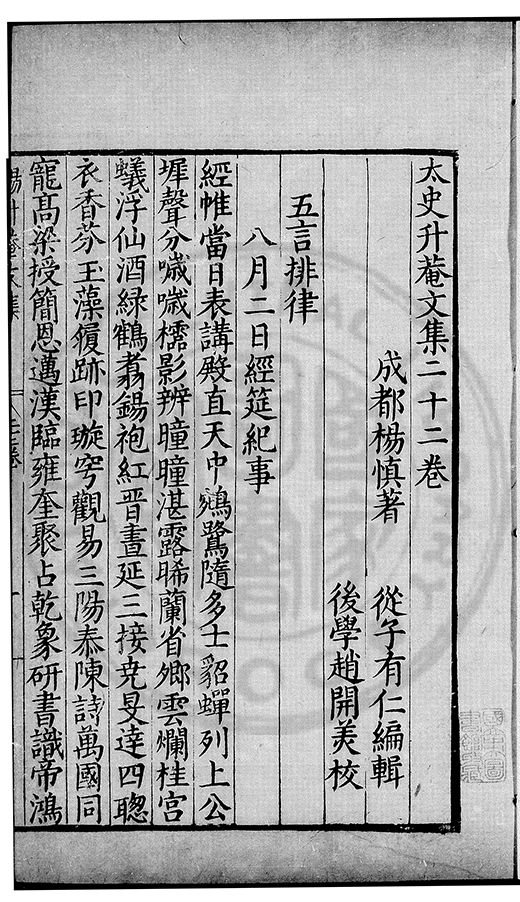 太史升菴文集二十二卷
成都楊慎著　從子有仁編輯
後學趙開美校
五言排律
八月二日經筵紀事
經帷當日表講殿直天中鵷鷺隨多士貂蟬列上公
墀聲分噦噦櫺影辨曈曈湛露晞蘭省鄉雲爛桂宮
蟻浮仙酒綠鶴翥錫袍紅晋晝延三接堯旻達四聰
衣香芬玉藻履跡印璇穹觀易三陽泰陳詩萬國同
寵高梁授簡恩邁漢臨雍奎聚占乾象研書識帝鴻